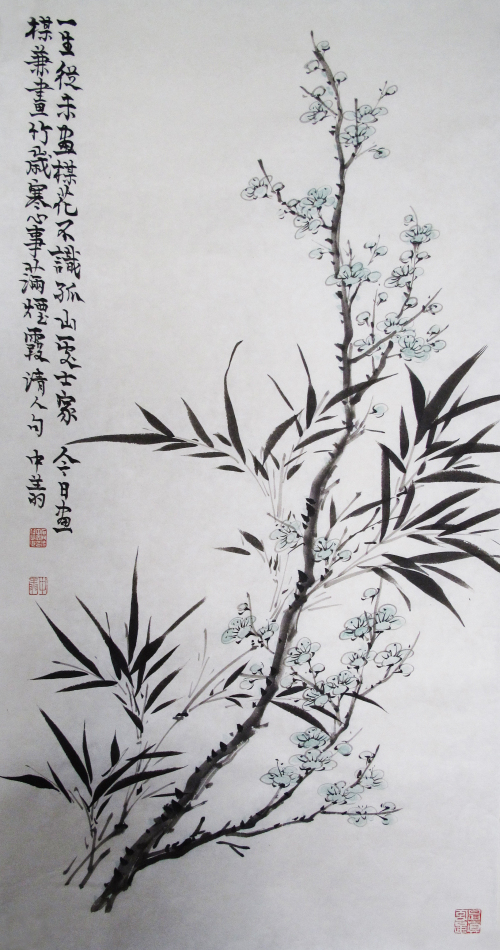 一生從未画楳花不識孤山處士家 今日画
楳兼畫竹歲寒心事滿煙霞 清人句 中翁